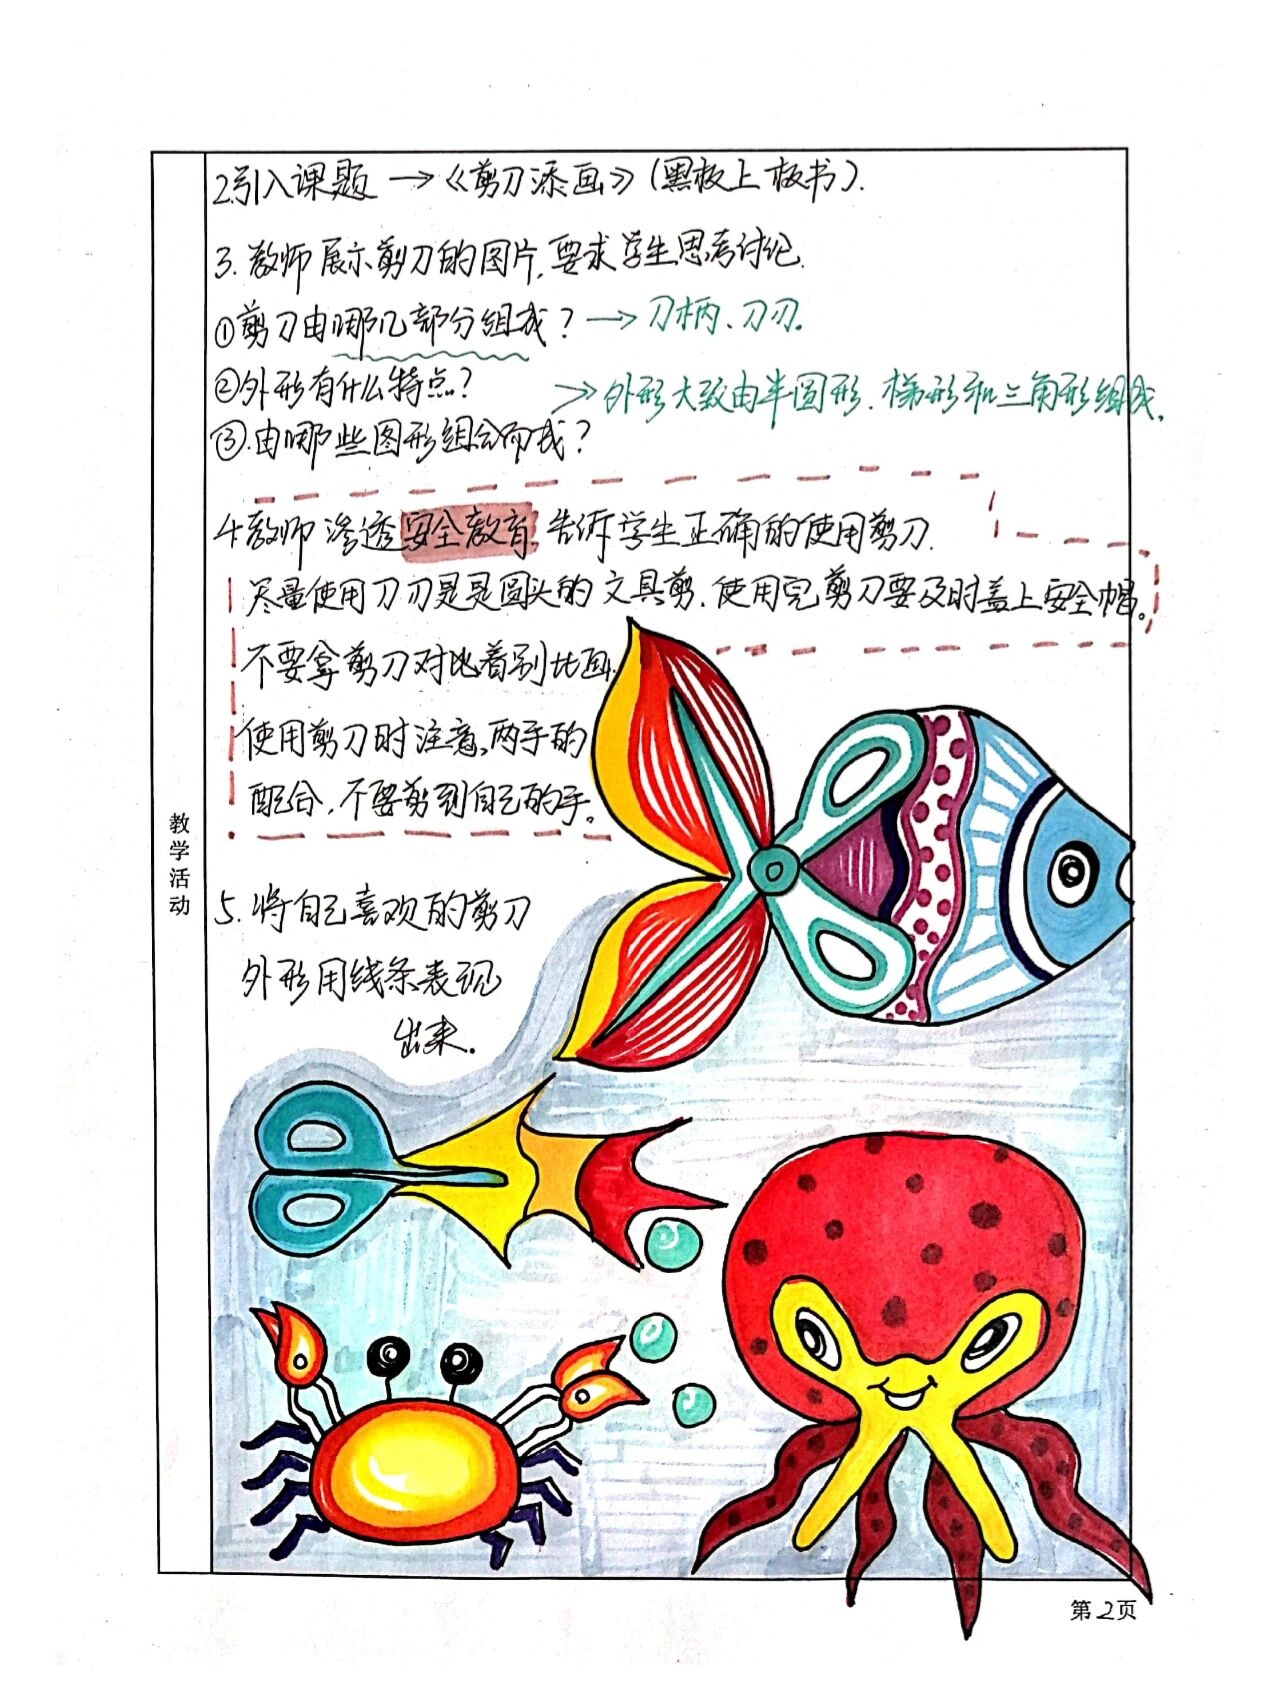 2.引入课题→《剪刀添画》(黑板上板书).
3.教师展示剪刀的图片,要求学生思考讨论.
①剪刀由哪几部分组成?→刀柄、刀刃.
②外形有什么特点?
→外形大致由半圆形.梯形和三角形组成.
③.由哪些图形组合而成?
4.教师渗透安全教育.告诉学生正确的使用剪刀.
尽量使用刀刃是是圆头的文具剪.使用完剪刀要及时盖上安全帽。
不要拿剪刀对比着别比画.
使用剪刀时注意,两手的
配合,不要剪到自己的手。
教学活动
5.将自己喜欢的剪刀
外形用线条表现
出来.
第2页